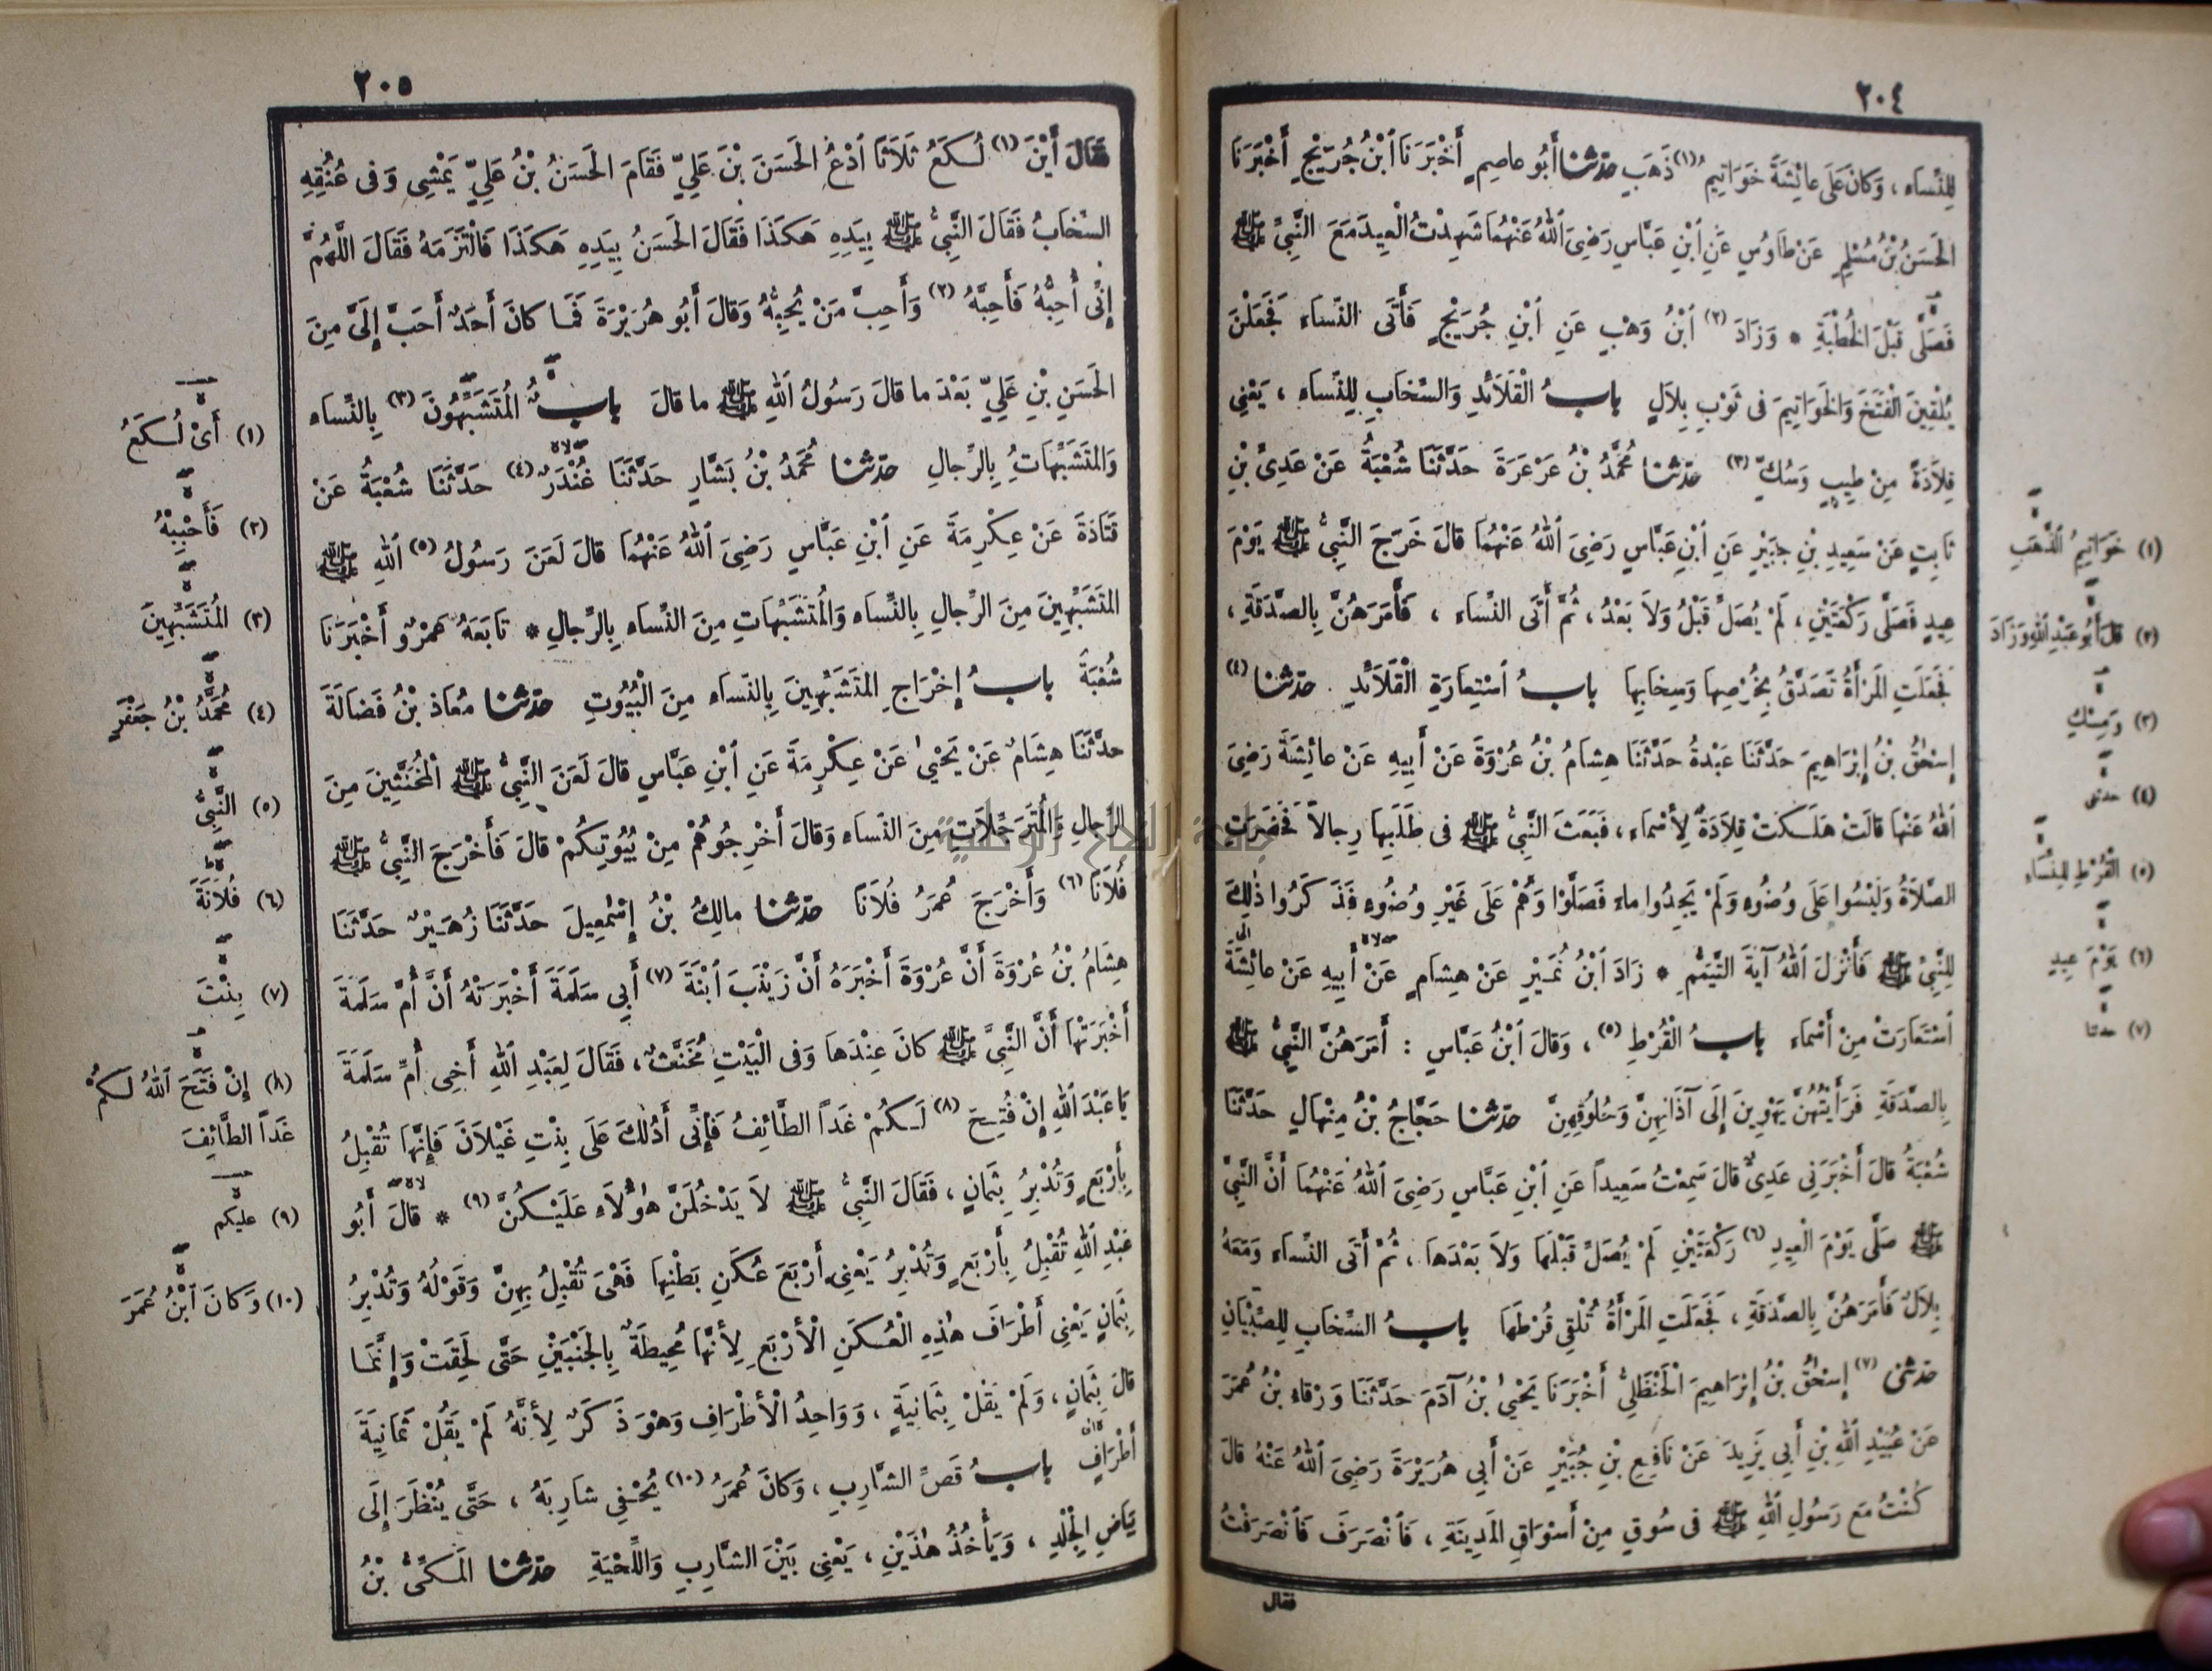 ٢٠٤
لِلنِّسَاءِ ، وَكانَ عَلَى عائِشَةَ خَوَاتِيمُ (١) ذَهَبٍ حدّثنا أَبُو عاصِمٍ أَخْبَرَنَا ٱبْنُ جُرَيْجٍ أَخْبَرَنَا
الحَسَنُ بْنُ مُسْلِمٍ عَنْ طَاوُسٍ عَنِ ٱبْنِ عَبَّاسٍ رَضِيَ ٱللهُ عَنْهُمَا شَهِدْتُ الْعِيدَ مَعَ النَّبِيِّ ﷺ
فَصَلَّى قَبْلَ الخُطْبَةِ * وَزَادَ (٢) ٱبْنُ وَهْبٍ عَنِ ٱبْنِ جُرَيْجٍ فَأَتَى النِّسَاءَ فَجَعَلْنَ
يُلْقِينَ الْفَتَخَ وَالخَوَاتِيمَ فى ثَوْبِ بِلاَلٍ بابُ الْقَلاَئِدِ وَالسِّخَابِ لِلنِّسَاءِ ، يَعْنِي
قِلاَدَةً مِنْ طِيبٍ وَسُكٍّ (٣) حدّثنا مُحَمَّدُ بْنُ عَرْعَرَةَ حَدَّثَنَا شُعْبَةُ عَنْ عَدِيِّ بْنِ
ثابِتٍ عَنْ سَعِيدِ بْنِ جُبَيْرٍ عَنِ ٱبْنِ عَبَّاسٍ رَضِيَ ٱللهُ عَنْهُمَا قالَ خَرَجَ النَّبِيُّ ﷺ يَوْمَ
عِيدٍ فَصَلَّى رَكْعَتَيْنِ ، لَمْ يُصَلِّ قَبْلُ وَلاَ بَعْدُ ، ثُمَّ أَتَى النِّسَاءَ ، فَأَمَرَهُنَّ بِالصَّدَقَةِ ،
فَجَعَلَتِ المَرْأَةُ تَصَدَّقُ بِخُرْصِهَا وَسِخَابِهَا بابُ ٱسْتِعَارَةِ الْقَلاَئِدِ حدّثنا (٤)
إِسْحٰقُ بْنُ إِبْرَاهِيمَ حَدَّثَنَا عَبْدَةُ حَدَّثَنَا هِشَامُ بْنُ عُرْوَةَ عَنْ أَبِيهِ عَنْ عائِشَةَ رَضِيَ
ٱللهُ عَنْهَا قالَتْ هَلَكَتْ قِلاَدَةٌ لِأَسْمَاءَ ، فَبَعَثَ النَّبِيُّ ﷺ فى طَلَبِهَا رِجالاً فَحَضَرَتِ
الصَّلاَةُ وَلَيْسُوا عَلَى وُضُوءٍ وَلَمْ يَجِدُوا ماءً فَصَلَّوْا وَهُمْ عَلَى غَيْرِ وُضُوءٍ فَذَكَرُوا ذٰلِكَ
لِلنَّبِيِّ ﷺ فَأَنْزَلَ ٱللهُ آيَةَ التَّيَمُّمِ * زَادَ ٱبْنُ نُمَيْرٍ عَنْ هِشَامٍ عَنْ أَبِيهِ عَنْ عائِشَةَ
ٱسْتَعَارَتْ مِنْ أَسْمَاءَ بابُ الْقُرْطِ (٥) ، وَقالَ ٱبْنُ عَبَّاسٍ : أَمَرَهُنَّ النَّبِيُّ ﷺ
بِالصَّدَقَةِ فَرَأَيْتُهُنَّ يَهْوِينَ إِلَى آذَانِهِنَّ وَحُلُوقِهِنَّ حدّثنا حَجَّاجُ بْنُ مِنْهَالٍ حَدَّثَنَا
شُعْبَةُ قالَ أَخْبَرَنِي عَدِيٌّ قالَ سَمِعْتُ سَعِيداً عَنِ ٱبْنِ عَبَّاسٍ رَضِيَ ٱللهُ عَنْهُمَا أَنَّ النَّبِيَّ
ﷺ صَلَّى يَوْمَ الْعِيدِ (٦) رَكْعَتَيْنِ لَمْ يُصَلِّ قَبْلَهَا وَلاَ بَعْدَهَا ، ثُمَّ أَتَى النِّسَاءَ وَمَعَهُ
بِلاَلٌ فَأَمَرَهُنَّ بِالصَّدَقَةِ ، فَجَعَلَتِ المَرْأَةُ تُلْقِي قُرْطَهَا بابُ السِّخَابِ لِلصِّبْيَانِ
حدّثنى (٧) إِسْحٰقُ بْنُ إِبْرَاهِيمَ الْحَنْظَلِيُّ أَخْبَرَنَا يَحْيىٰ بْنُ آدَمَ حَدَّثَنَا وَرْقاءُ بْنُ عُمَرَ
عَنْ عُبَيْدِ ٱللهِ بْنِ أَبِي يَزِيدَ عَنْ نَافِعِ بْنِ جُبَيْرٍ عَنْ أَبِي هُرَيْرَةَ رَضِيَ ٱللهُ عَنْهُ قالَ
كُنْتُ مَعَ رَسُولِ ٱللهِ ﷺ فى سُوقٍ مِنْ أَسْوَاقِ المَدِينَةِ ، فَٱنْصَرَفَ فَٱنْصَرَفْتُ
فقال
(١) خَوَاتِيمُ الذَّهَبِ
(٢) قالَ أَبُو عَبْدِ ٱللهِ وَزَادَ
(٣) وَمِسْكٍ
(٤) حدثنى
(٥) الْقُرْطِ لِلنِّسَاءِ
(٦) يَوْمَ عِيدٍ
(٧) حدثنا
٢٠٥
فَقَالَ أَيْنَ (١) لُكَعُ ثَلاَثًا ٱدْعُ الحَسَنَ بْنَ عَلِيٍّ فَقَامَ الحَسَنُ بْنُ عَلِيٍّ يَمْشِى وَفى عُنُقِهِ
السِّخَابُ فَقَالَ النَّبِيُّ ﷺ بِيَدِهِ هَكَذَا فَقَالَ الحَسَنُ بِيَدِهِ هَكَذَا فَالْتَزَمَهُ فَقَالَ اللَّهُمَّ
إِنِّى أُحِبُّهُ فَأَحِبَّهُ (٢) وَأَحِبَّ مَنْ يُحِبُّهُ وَقالَ أَبُو هُرَيْرَةَ فَمَا كانَ أَحَدٌ أَحَبَّ إِلَىَّ مِنَ
الحَسَنِ بْنِ عَلِيٍّ بَعْدَ ما قالَ رَسُولُ ٱللهِ ﷺ ما قالَ بابٌ المُتَشَبِّهُونَ (٣) بِالنِّسَاءِ
وَالمُتَشَبِّهَاتُ بِالرِّجالِ حدّثنا مُحَمَّدُ بْنُ بَشَّارٍ حَدَّثَنَا غُنْدَرٌ (٤) حَدَّثَنَا شُعْبَةُ عَنْ
قَتَادَةَ عَنْ عِكْرِمَةَ عَنِ ٱبْنِ عَبَّاسٍ رَضِيَ ٱللهُ عَنْهُمَا قالَ لَعَنَ رَسُولُ (٥) ٱللهِ ﷺ
المُتَشَبِّهِينَ مِنَ الرِّجالِ بِالنِّسَاءِ وَالمُتَشَبِّهَاتِ مِنَ النِّسَاءِ بِالرِّجالِ * تابَعَهُ عَمْرٌو أَخْبَرَنَا
شُعْبَةُ بابُ إِخْرَاجِ المُتَشَبِّهِينَ بِالنِّسَاءِ مِنَ الْبُيُوتِ حدّثنا مُعَاذُ بْنُ فَضَالَةَ
حدَّثَنَا هِشَامٌ عَنْ يَحْيىٰ عَنْ عِكْرِمَةَ عَنِ ٱبْنِ عَبَّاسٍ قالَ لَعَنَ النَّبِيُّ ﷺ الْمُخَنَّثِينَ مِنَ
الرِّجالِ وَالْمُتَرَجِّلاَتِ مِنَ النِّسَاءِ وَقالَ أَخْرِجُوهُمْ مِنْ بُيُوتِكُمْ قالَ فَأَخْرَجَ النَّبِيُّ ﷺ
فُلاَنًا (٦) وَأَخْرَجَ عُمَرُ فُلاَنًا حدّثنا مالِكُ بْنُ إِسْمٰعِيلَ حَدَّثَنَا زُهَيْرٌ حَدَّثَنَا
هِشَامُ بْنُ عُرْوَةَ أَنَّ عُرْوَةَ أَخْبَرَهُ أَنَّ زَيْنَبَ ٱبْنَةَ (٧) أَبِي سَلَمَةَ أَخْبَرَتْهُ أَنَّ أُمَّ سَلَمَةَ
أَخْبَرَتْهَا أَنَّ النَّبِيَّ ﷺ كانَ عِنْدَهَا وَفى الْبَيْتِ مُخَنَّثٌ ، فَقَالَ لِعَبْدِ ٱللهِ أَخِى أُمِّ سَلَمَةَ
يَا عَبْدَ ٱللهِ إِنْ فُتِحَ (٨) لَكُمْ غَداً الطَّائِفُ فَإِنِّى أَدُلُّكَ عَلَى بِنْتِ غَيْلاَنَ فَإِنَّهَا تُقْبِلُ
بِأَرْبَعٍ وَتُدْبِرُ بِثَمانٍ ، فَقَالَ النَّبِيُّ ﷺ لاَ يَدْخُلَنَّ هٰؤُلاَءِ عَلَيْكُنَّ (٩) * قالَ أَبُو
عَبْدِ ٱللهِ تُقْبِلُ بِأَرْبَعٍ وَتُدْبِرُ يَعْنِى أَرْبَعَ عُكَنِ بَطْنِهَا فَهْىَ تُقْبِلُ بِهِنَّ وَقَوْلُهُ وَتُدْبِرُ
بِثَمَانٍ يَعْنِى أَطْرَافَ هٰذِهِ الْعُكَنِ الْأَرْبَعِ لِأَنَّهَا مُحِيطَةٌ بِالجَنْبَيْنِ حَتَّى لَحِقَتْ وَإِنَّمَا
قالَ بِثَمَانٍ ، وَلَمْ يَقُلْ بِثَمَانِيَةٍ ، وَوَاحِدُ الْأَطْرَافِ وَهْوَ ذَكَرٌ لِأَنَّهُ لَمْ يَقُلْ ثَمَانِيَةَ
أَطْرَافٍ بابُ قَصِّ الشَّارِبِ ، وَكانَ عُمَرُ (١٠) يُحْفِى شارِبَهُ ، حَتَّى يُنْظَرَ إِلَى
بَيَاضِ الْجِلْدِ ، وَيَأْخُذُ هٰذَيْنِ ، يَعْنِى بَيْنَ الشَّارِبِ وَاللِّحْيَةِ حدّثنا المَكِّىُّ بْنُ
(١) أَىْ لُكَعُ
(٢) فَأَحْبِبْهُ
(٣) المُتَشَبِّهِينَ
(٤) مُحَمَّدُ بْنُ جَعْفَرٍ
(٥) النَّبِىُّ
(٦) فُلاَنَةَ
(٧) بِنْتَ
(٨) إِنْ فَتَحَ ٱللهُ لَكُمْ
غَداً الطَّائِفَ
(٩) عليكم
(١٠) وَكانَ ٱبْنُ عُمَرَ
جامعة النجاح الوطنية